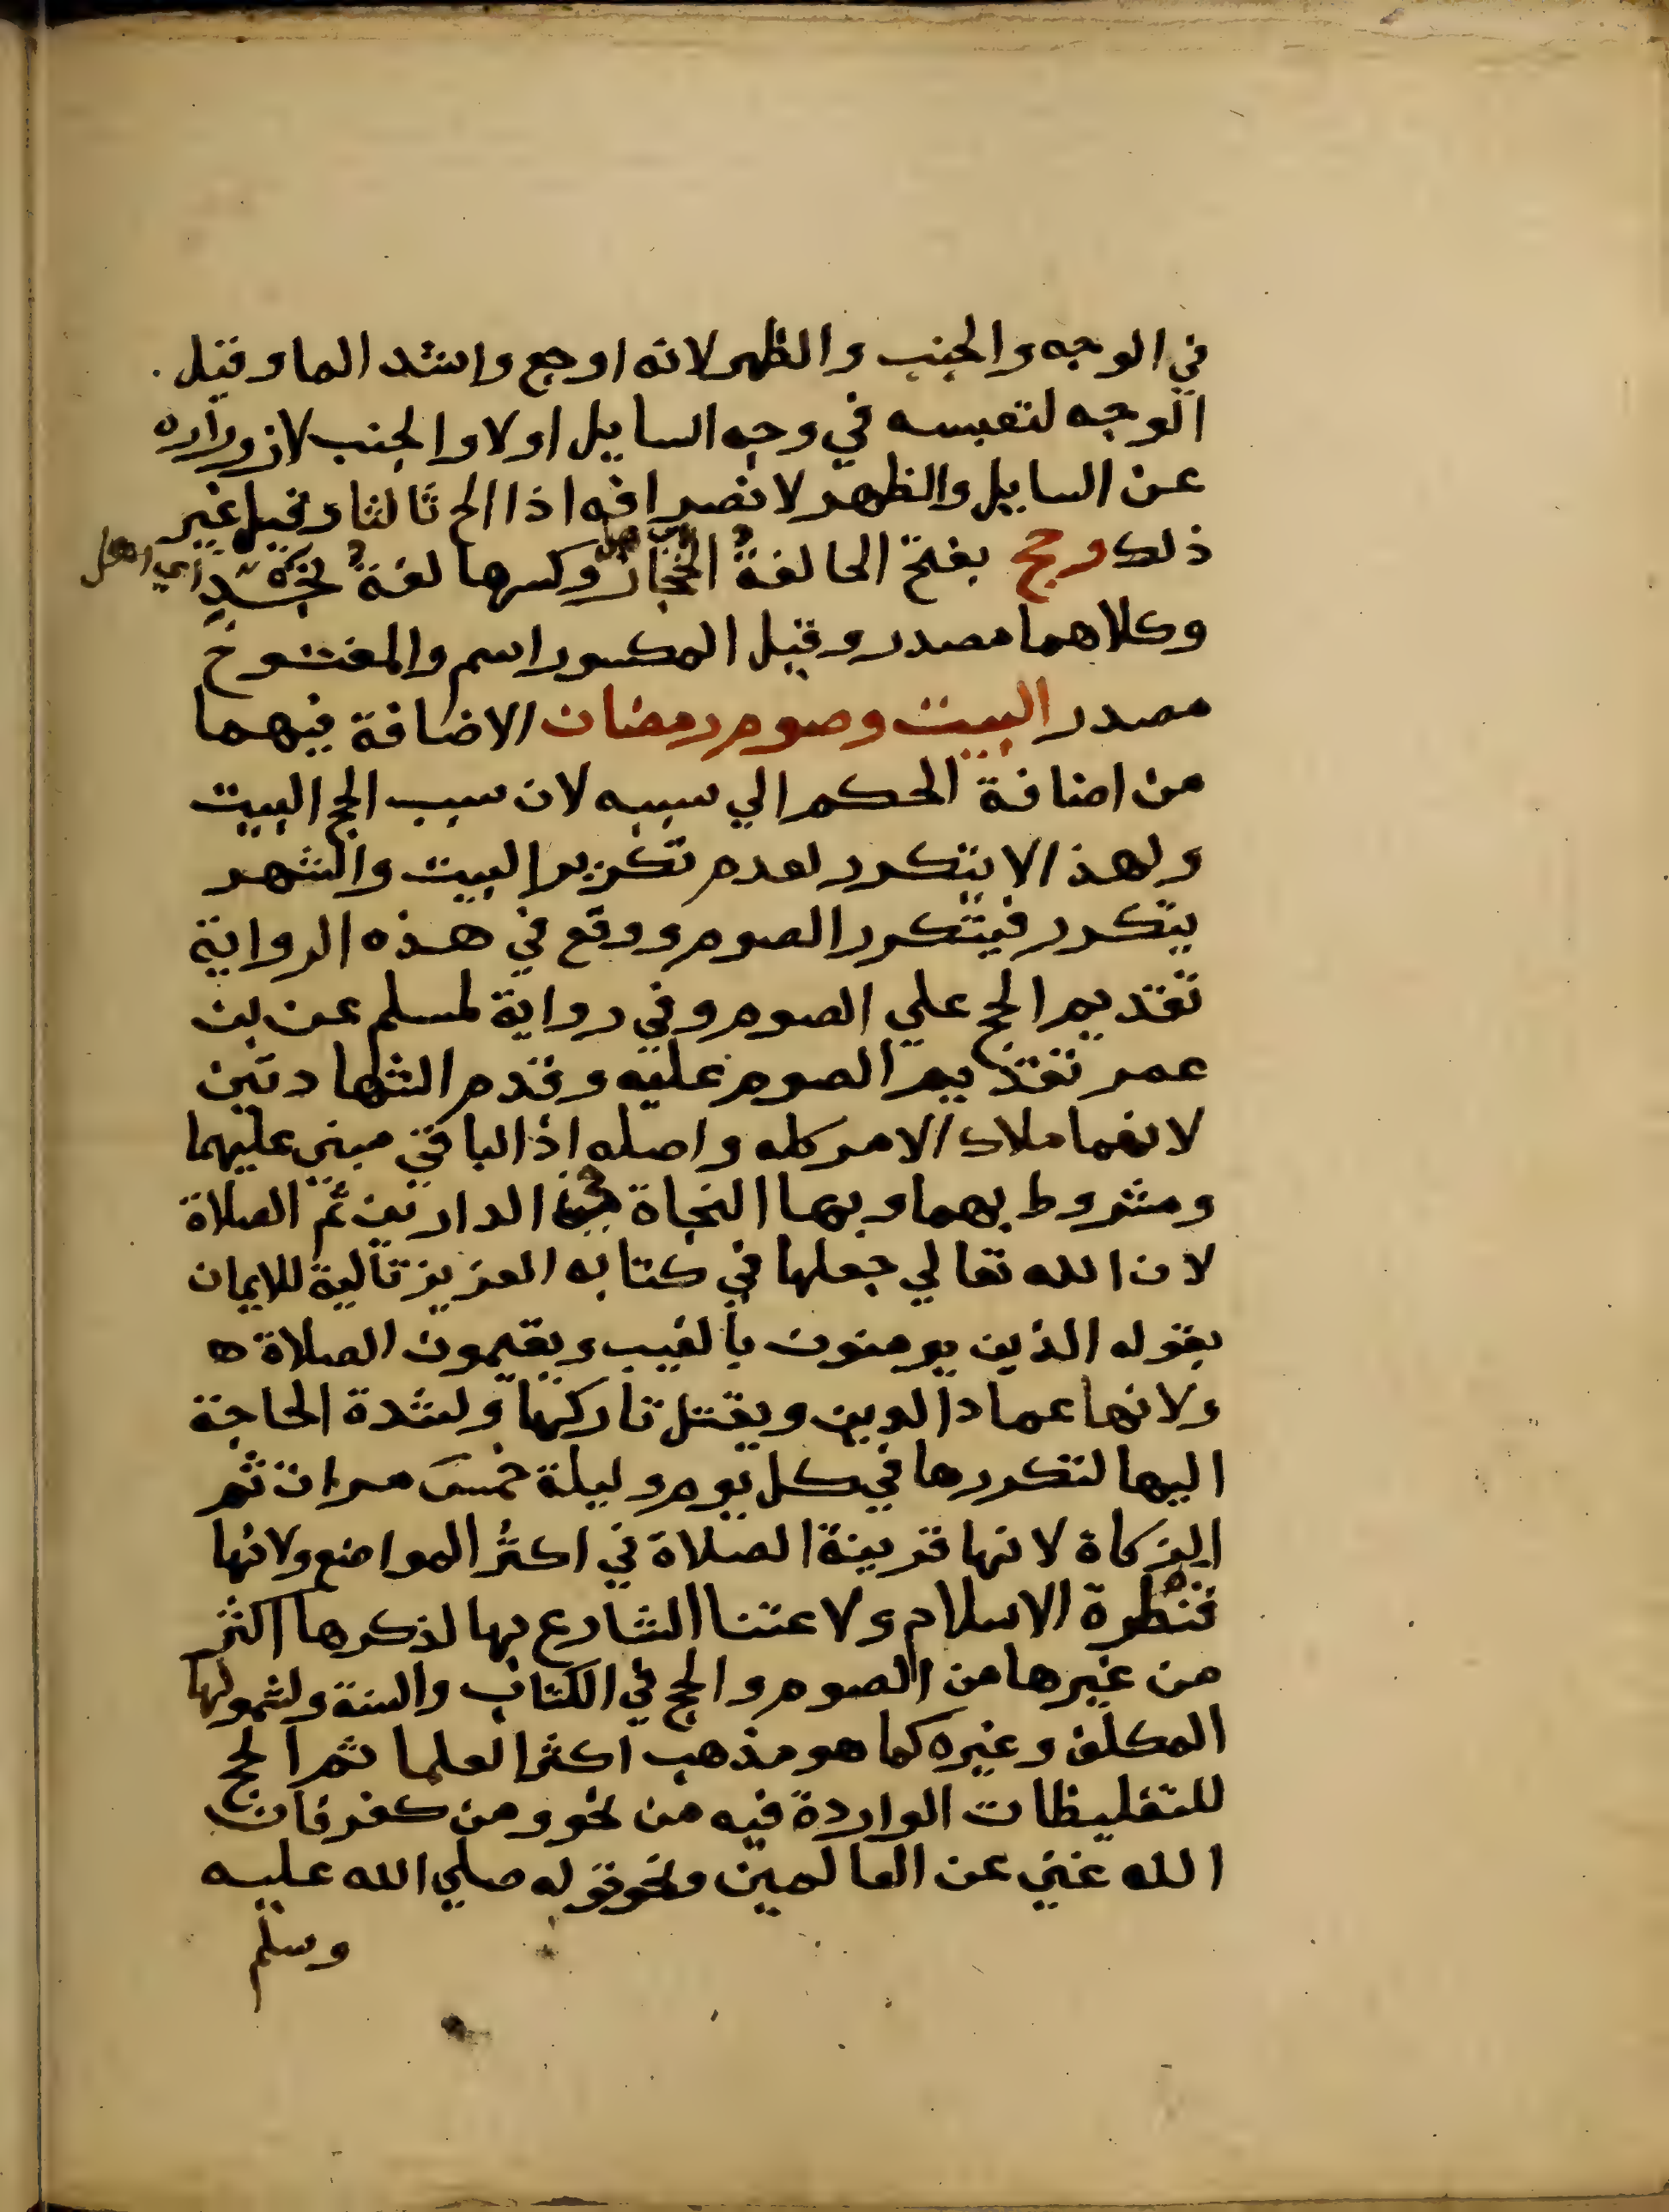 في الوجه والجنب والظهر لانه اوجع واشد الما وقيل
الوجه لتعبسه في وجه السايل اولا والجنب لازوراره
عن السايل والظهر لانصرافه اذا الح ثالثا وقيل غير
ذلك وحج بفتح الحا لغة الحجاز وكسرها لغة نجد اي اهل
وكلاهما مصدر وقيل المكسور اسم والمفتوح
مصدر البيت وصوم رمضان الاضافة فيهما
من اضافة الحكم الي سببه لان سبب الحج البيت
ولهذا لا يتكرر لعدم تكرير البيت والشهر
يتكرر فيتكرر الصوم ووقع في هذه الرواية
تقديم الحج علي الصوم وفي رواية لمسلم عن بن
عمر تقديم الصوم عليه وقدم الشهادتين
لانهما ملاك الامر كله واصله اذ الباقي مبني عليهما
ومشروط بهما وبهما النجاة في الدارين ثم الصلاة
لان الله تعالي جعلها في كتابه العزيز تالية للايمان
بقوله الذين يومنون بالغيب ويقيمون الصلاة ه
ولانها عماد الدين ويقتل تاركها ولشدة الحاجة
اليها لتكررها في كل يوم وليلة خمس مرات ثم
الزكاة لانها قرينة الصلاة في اكثر المواضع ولانها
قنطرة الاسلام ولاعتنا الشارع بها لذكرها اكثر
من غيرها من الصوم والحج في الكتاب والسنة ولشمولها
المكلف وغيره كما هو مذهب اكثر العلما ثم الحج
للتغليظات الواردة فيه من نحو ومن كفر فان
الله غني عن العالمين ونحو قوله صلي الله عليه
وسلم